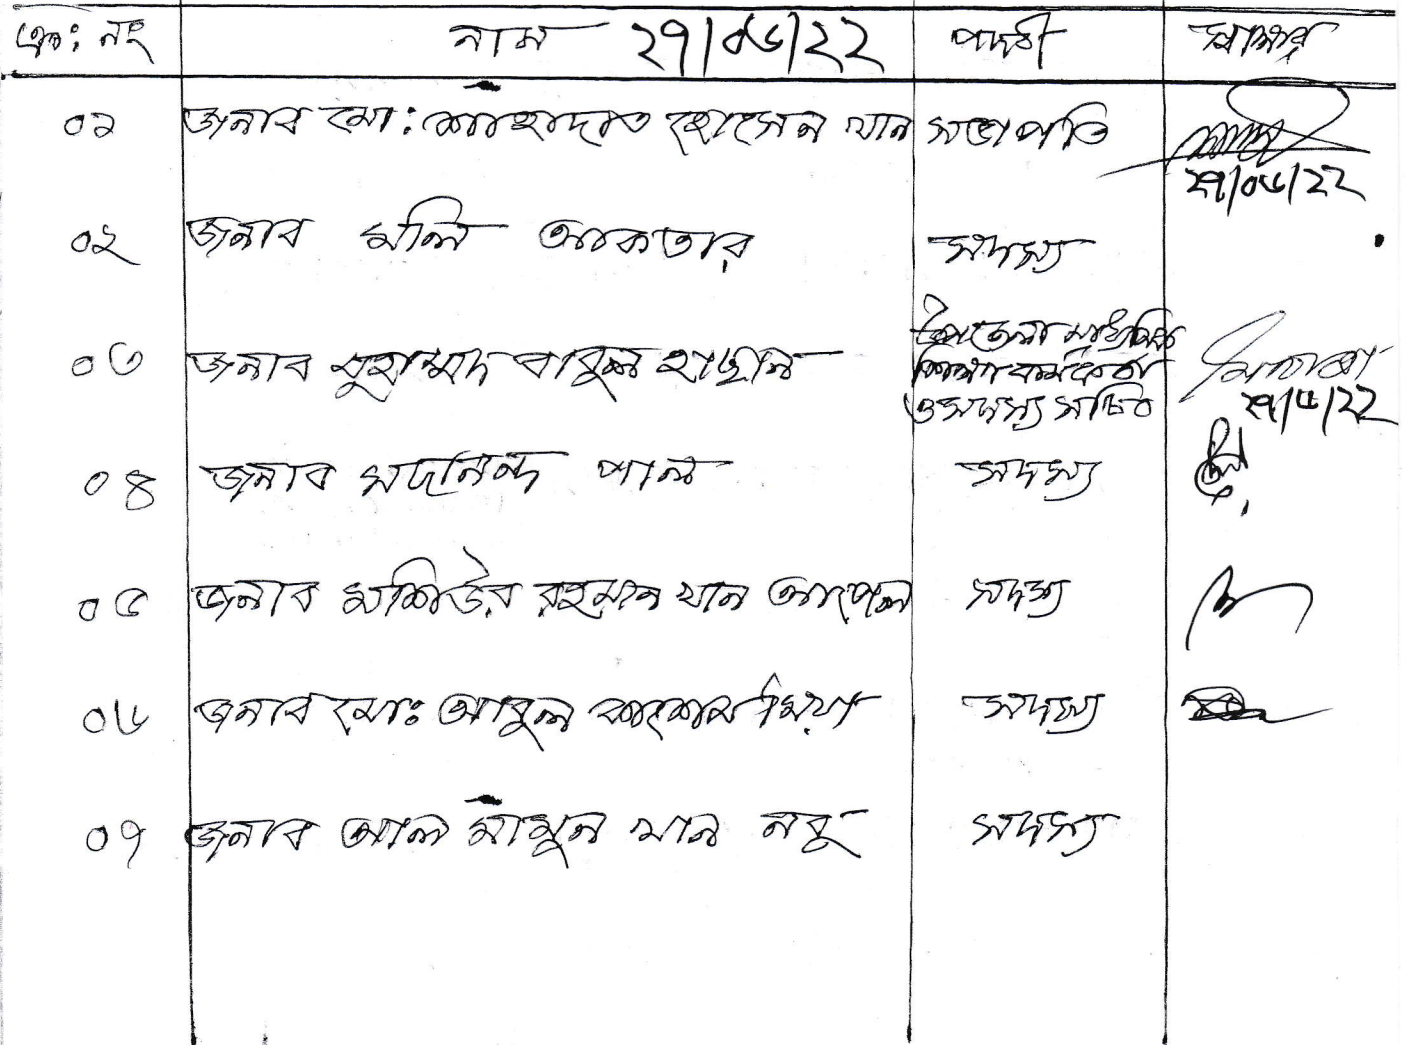 ক্র: নং নাম ২৭/০৬/২২ পদবী স্বাক্ষর
০১ জনাব মো: শাহাদাত হোসেন খান সভাপতি
২৭/০৬/২২
০২ জনাব মলি আকতার সদস্য
উপজেলা মাধ্যমিক
০৩ জনাব মুহাম্মদ বাবুল হাছান শিক্ষা কর্মকর্তা
ও সদস্য সচিব ২৭/৬/২২
০৪ জনাব সদানন্দ পাল সদস্য
০৫ জনাব মশিউর রহমান খান আপেল সদস্য
০৬ জনাব মো: আবুল কাশেম মিয়া সদস্য
০৭ জনাব আল মামুন খান নবু সদস্য